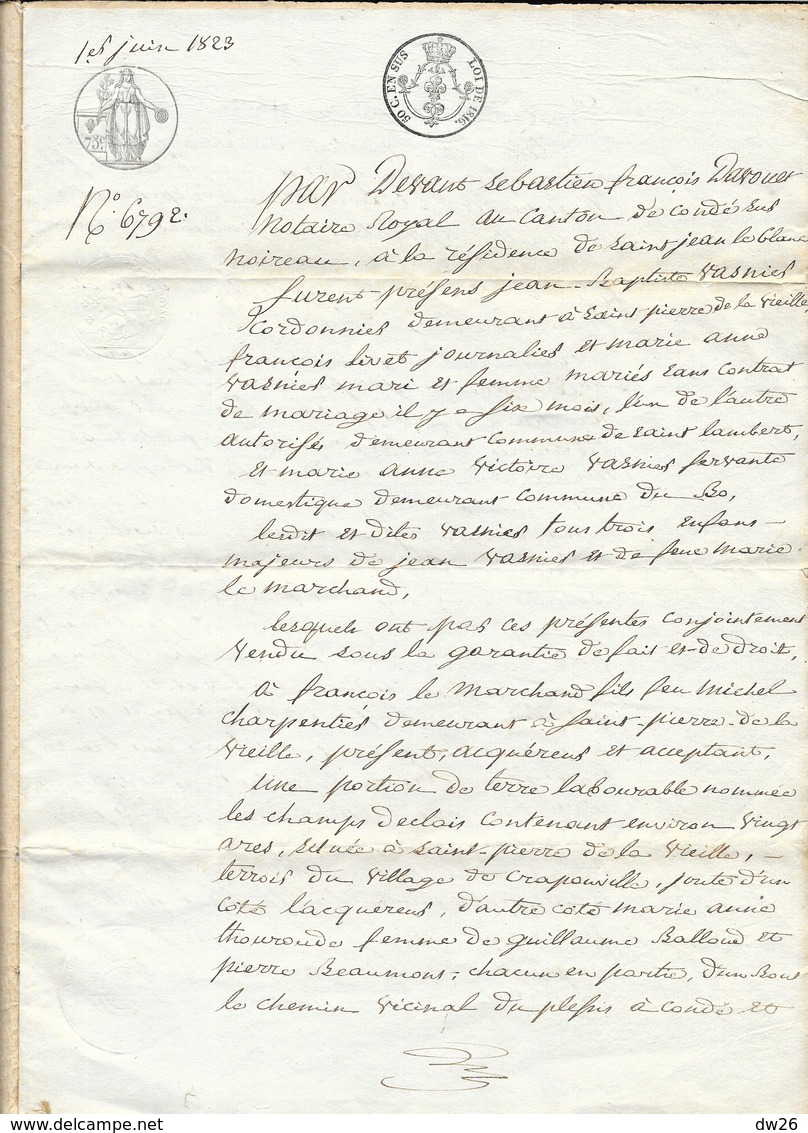 1er juin 1823
50 C. EN SUS LOI DE 1816.
75c
No. 6792.
par Devant Sebastien françois Davouet
Notaire Royal au Canton de Condé sus
noireau, à la résidence de Saint jean le blanc
furent présens jean-Baptiste Vasnier
Cordonnier demeurant à Saint pierre de la Vieille,
françois Livet journalier et marie anne
Vasnier mari et femme mariés sans contrat
de mariage il y a six mois, l'un de l'autre
autorisés demeurant commune de Saint lambert,
et marie anne Victoire Vasnier servante
domestique demeurant commune du Bo,
lesdit et dites Vasnier tous trois enfans
majeurs de jean Vasnier et de feue marie
le marchand,
lesquels ont par ces présentes conjointement
Vendu sous la garantie de fait et de droit,
à françois le Marchand fils feu Michel
charpentier demeurant à Saint-pierre-de-la
Vieille, présent, acquéreur et acceptant,
une portion de terre labourable nommée
les champs declais contenant environ Vingt
ares, située à Saint-pierre de la Vieille,
terroir du Village de Crapouville, joute d'un
côté l'acquéreur, d'autre côté marie anne
thouroude femme de guillaume Balloud et
pierre Beaumont, chacun en partie, d'un Bout
le chemin Vicinal du plessis à Condé et
dw26